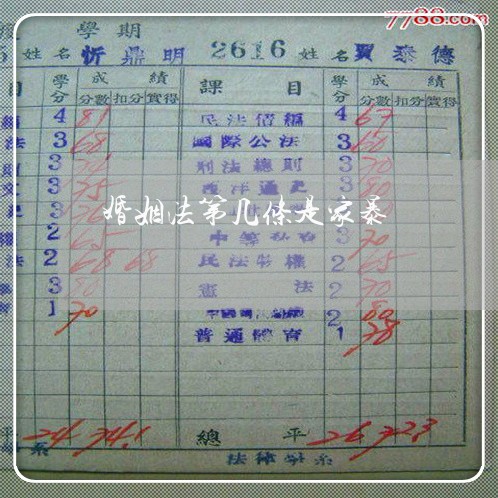 7788.com
學期
姓名 忻鼎明 2616 姓名 賈泰德
目 學分 成績 課目 學分 成績
分數 扣分 實得 分數 扣分 實得
4 81 民法債編 4 67
法 3 68 國際公法 3 60
3 刑法總則 3 70
3 75 西洋通史 3 80
3
婚姻法第几条是家暴
2 65 3 70
法 2 68 68 民法物權 2 65
3 80 憲法 2 70
1 70 2 80
普通體育 1 78
平 24 74.1 總平 26 72.3
系 法律學系